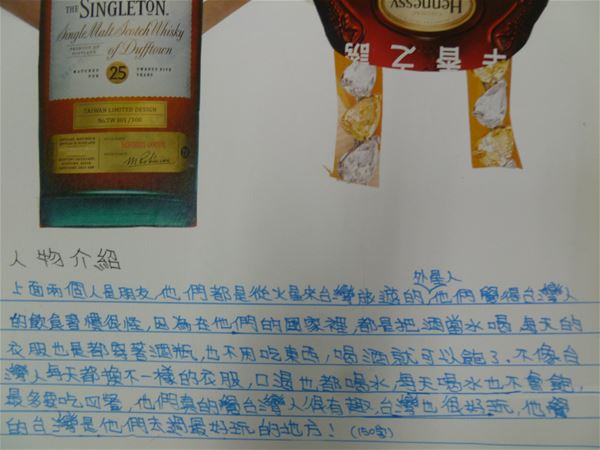 THE SINGLETON
Single Malt Scotch Whisky
PRODUCT OF SCOTLAND
of Dufftown
MATURED FOR 25 TWENTY FIVE YEARS
TAIWAN LIMITED DESIGN
Hennessy
千香之誘
人物介紹
上面兩個人是朋友,他們都是從火星來台灣旅遊的外星人,他們覺得台灣人
的飲食習慣很怪,因為在他們的國家裡,都是把酒當水喝,每天的
衣服也是都穿著酒瓶,也不用吃東西,喝酒就可以飽了,不像台
灣人每天都換不一樣的衣服,口渴也都喝水,每天喝水也不會飽,
最多要吃四餐,他們真的覺台灣人很有趣,台灣也很好玩,他覺
的台灣是他們去過最好玩的地方! (150字)